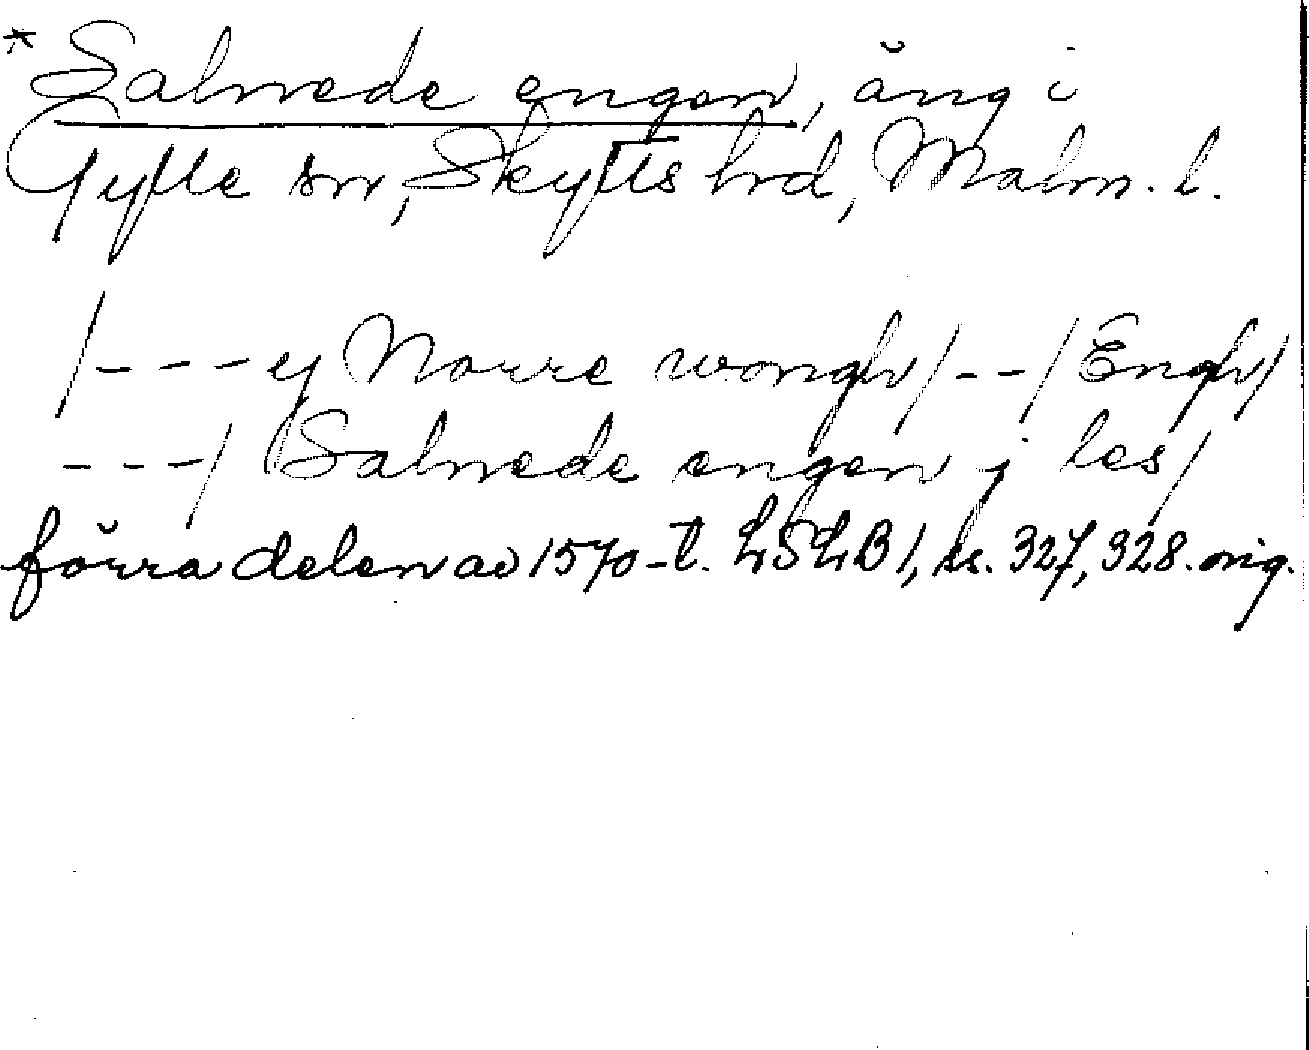 *Salmede engen, äng i
Gylle sn, Skytts hrd, Malm. l.
/---y Norre wongh/--/Engh/
---/Salmede engen j les/
förra delen av 1570-t. LSLB 1, ss. 327, 328. orig.